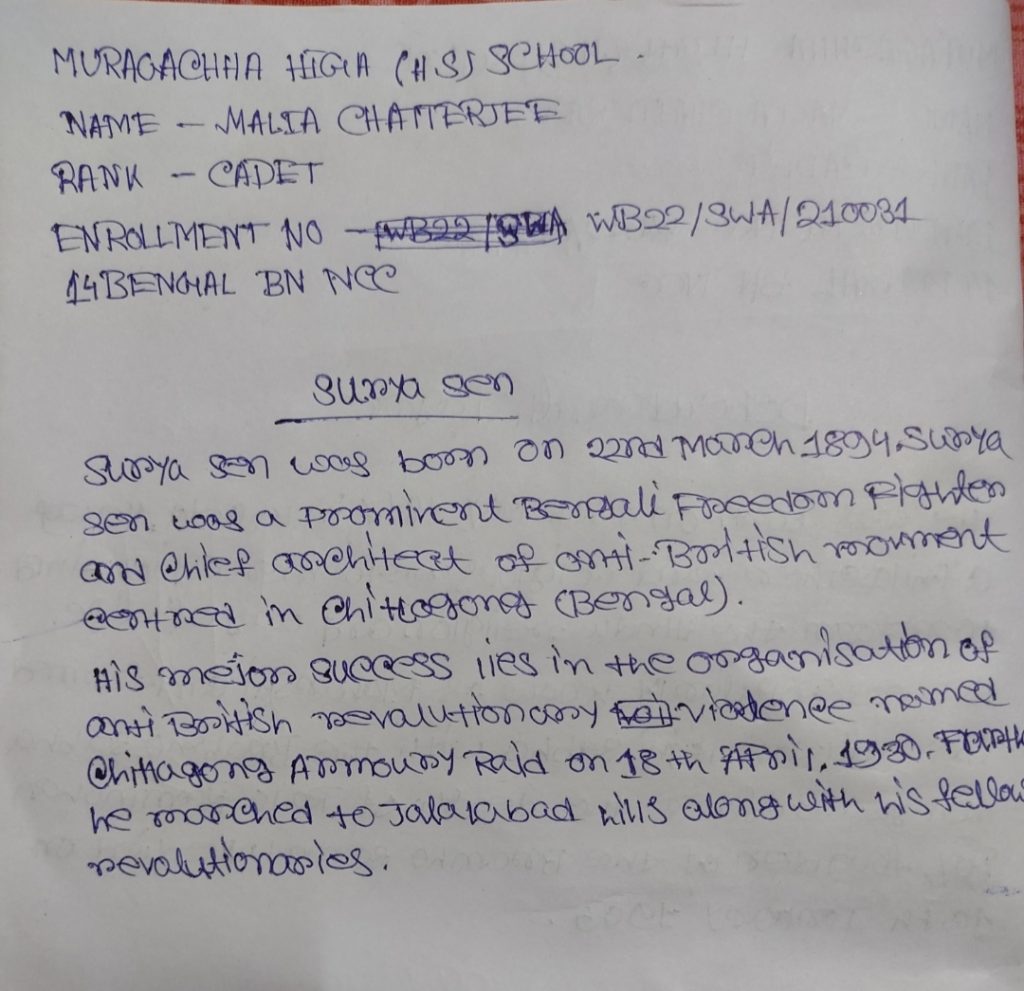 MURAGACHHA HIGH (HS) SCHOOL.
NAME - MALIA CHATTERJEE
RANK - CADET
ENROLLMENT NO - WB22/SWA WB22/SWA/210031
14 BENGAL BN NCC
Surya Sen
Surya Sen was born on 22nd March 1894. Surya
Sen was a prominent Bengali Freedom Fighter
and chief architect of anti-British movment
centred in Chittagong (Bengal).
His mejor success lies in the organisation of
anti British revalutionary violence named
Chittagong Armoury Raid on 18th April, 1930.
he marched to Jalalabad hills along with his fellow
revalutionaries.